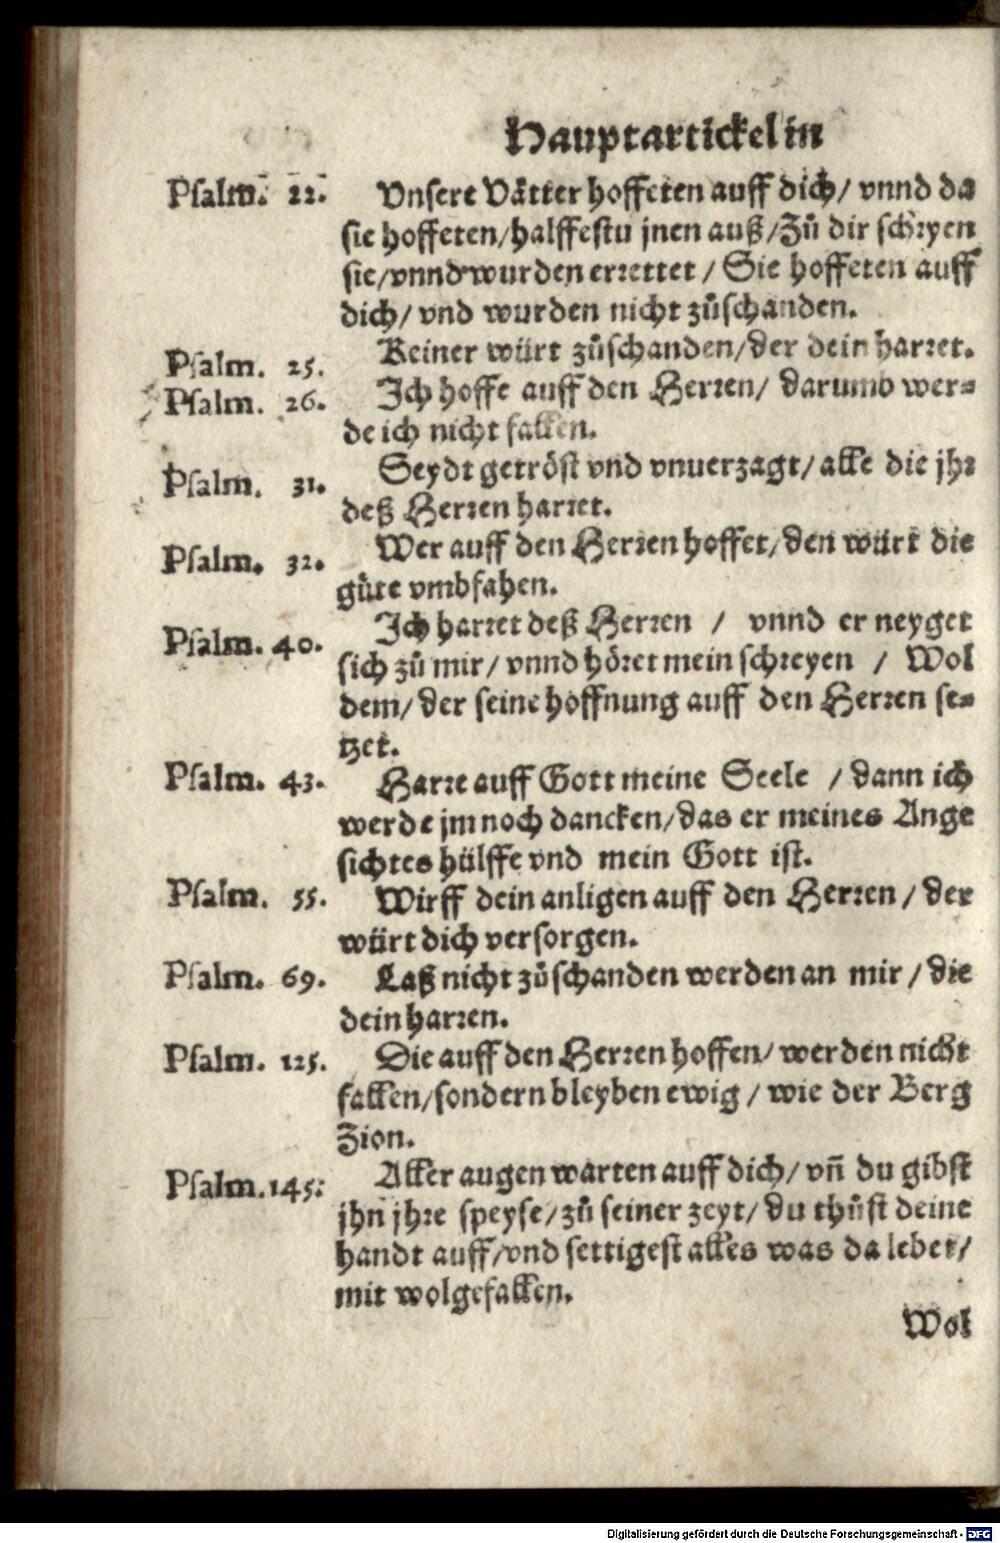 Hauptartickel in
Psalm. 22. Vnsere Vätter hoffeten auff dich/ vnnd da
sie hoffeten/halffestu jnen auß/Zů dir schryen
sie/vnnd wurden errettet/ Sie hoffeten auff
dich/ vnd wurden nicht zůschanden.
Psalm. 25. Keiner würt zůschanden/der dein harret.
Psalm. 26. Ich hoffe auff den Herren/ darumb wer⸗
de ich nicht fallen.
Psalm. 31. Seydt getröst vnd vnuerzagt/ alle die jhr
deß Herren harret.
Psalm. 32. Wer auff den Herren hoffet/den würt die
güte vmbfahen.
Psalm. 40. Ich harret deß Herren / vnnd er neyget
sich zů mir/ vnnd höret mein schreyen / Wol
dem/ der seine hoffnung auff den Herren se⸗
tzet.
Psalm. 43. Harre auff Gott meine Seele / dann ich
werde jm noch dancken/das er meines Ange
sichtes hülffe vnd mein Gott ist.
Psalm. 55. Wirff dein anligen auff den Herren / der
würt dich versorgen.
Psalm. 69. Laß nicht zůschanden werden an mir / die
dein harren.
Psalm. 125. Die auff den Herren hoffen/ werden nicht
fallen/sondern bleyben ewig / wie der Berg
Zion.
Psalm. 145. Aller augen warten auff dich/ vñ du gibst
jhn jhre speyse/zů seiner zeyt/ du thůst deine
handt auff/vnd settigest alles was da lebet/
mit wolgefallen.
Wol
Digitalisierung gefördert durch die Deutsche Forschungsgemeinschaft - DFG